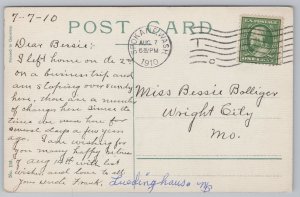 7-7-10
POST CARD
SPOKANE, WASH.
AUG 7
6 PM
1910
Dear Bessie:
I left home on the 2nd
on a business trip and
am stopping over Sunday
here, there are a number
of changes here since the
time we were here for
several days a few years
ago. I am wishing for
you many happy returns
of Aug 10th with best
wishes and love to all
your Uncle Frank.
Miss Bessie Bolliger
Wright City
Mo.
Luedinghause